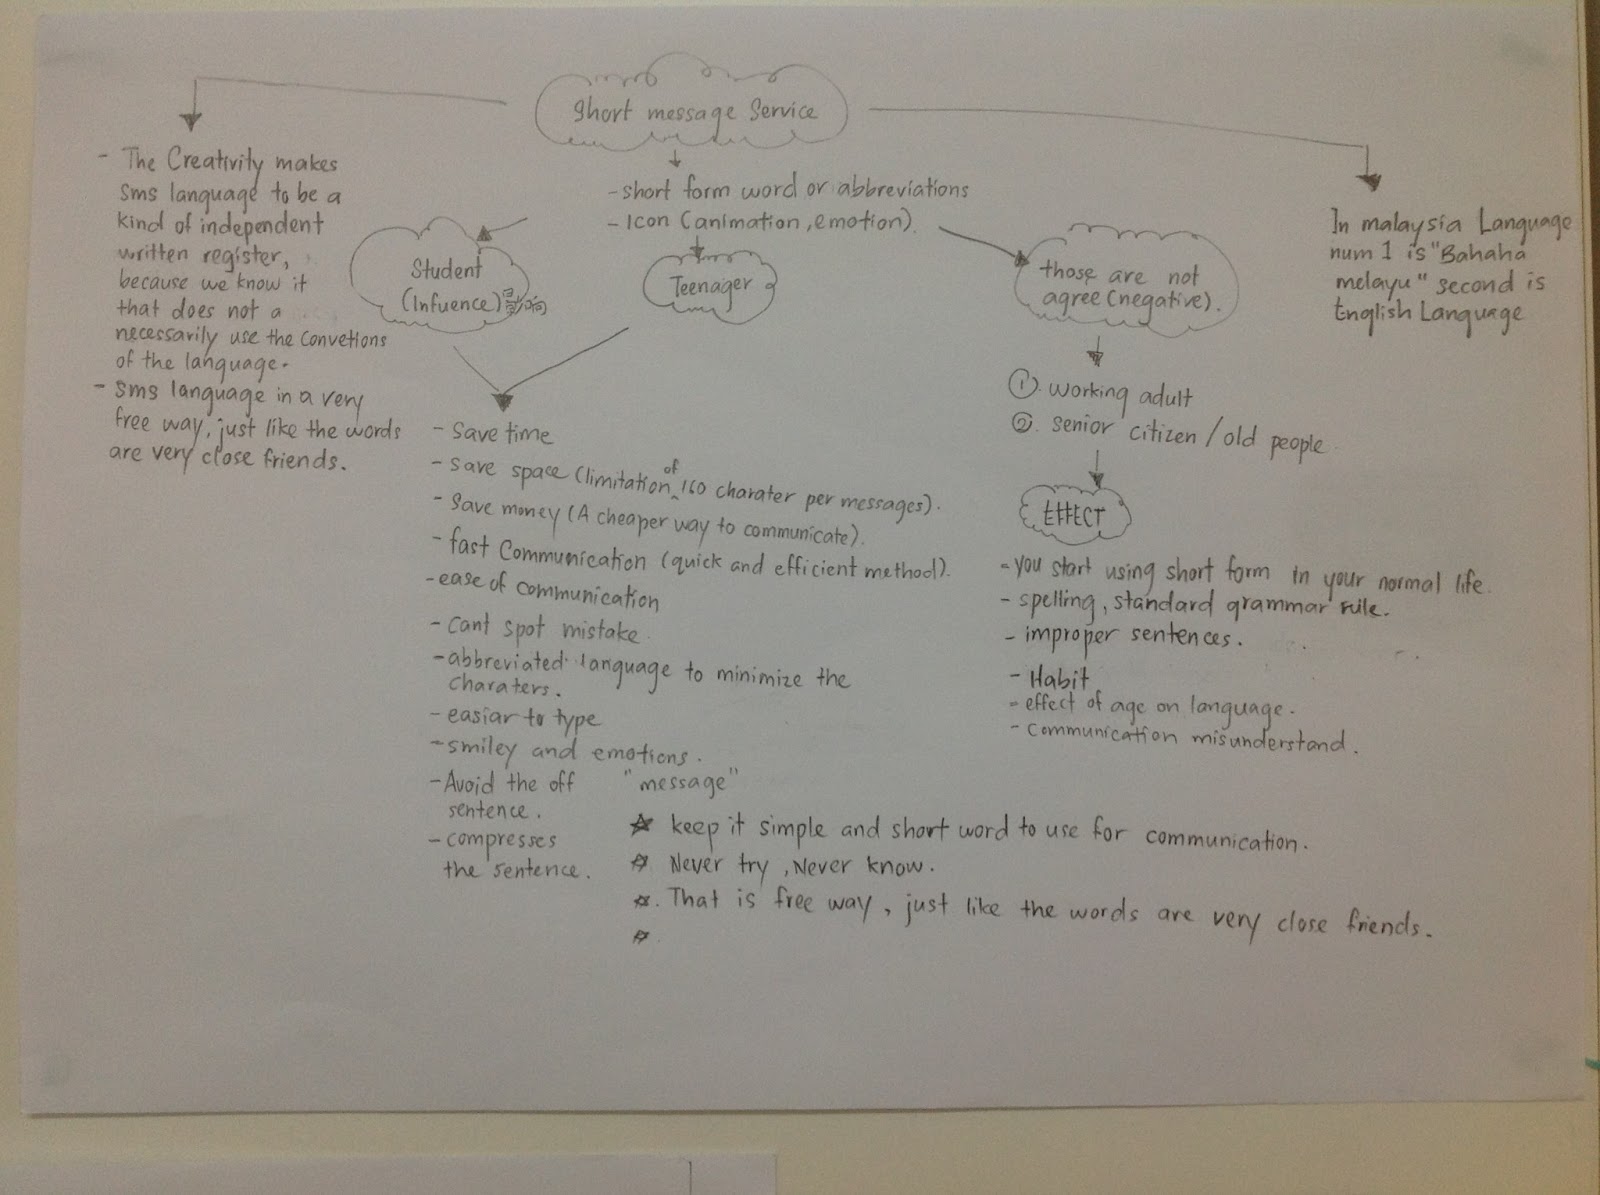 Short message Service
- The Creativity makes
sms language to be a
kind of independent
written register,
because we know it
that does not a
necessarily use the convetions
of the language.
- sms language in a very
free way, just like the words
are very close friends.
- short form word or abbreviations
- Icon (animation, emotion).
In malaysia Language
num 1 is "Bahaha
melayu" second is
English Language
Student
(Infuence) 影响
Teenager
those are not
agree (negative).
① working adult
②. senior citizen / old people
EFFECT
- you start using short form in your normal life.
- spelling, standard grammar rule.
- improper sentences.
- Habit
- effect of age on language.
- communication misunderstand.
- save time
- save space (limitation of 160 charater per messages).
- save money (A cheaper way to communicate).
- fast Communication (quick and efficient method).
- ease of communication
- cant spot mistake.
- abbreviated language to minimize the
charaters.
- easiar to type
- smiley and emotions.
- Avoid the off
sentence.
- compresses
the sentence.
"message"
☆ keep it simple and short word to use for communication.
☆ Never try, Never know.
☆. That is free way, just like the words are very close friends.
☆